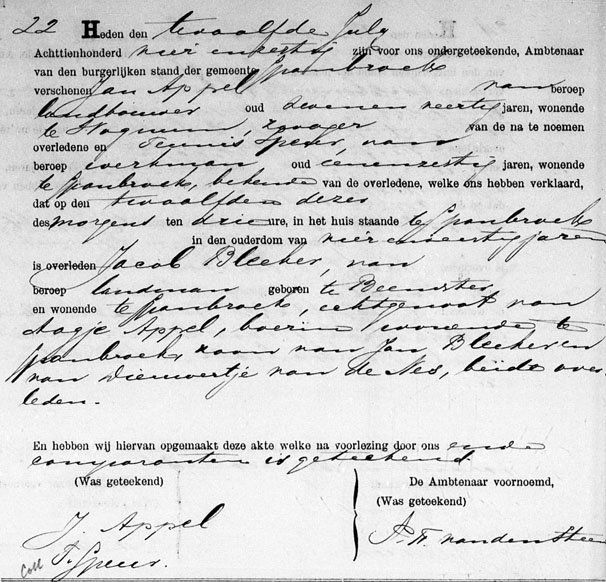 22 Heden den twaalfde July
Achttienhonderd vier en zestig zijn voor ons ondergeteekende, Ambtenaar
van den burgerlijken stand der gemeente Spanbroek
verschenen Jan Appel van beroep
landbouwer oud zevenen veertig jaren, wonende
te Hogwoud, zwager van de na te noemen
overledene en Teunis Speur, van
beroep werkman oud eenenzestig jaren, wonende
te Spanbroek, bekende van de overledene, welke ons hebben verklaard,
dat op den twaalfden dezer
des morgens ten drie ure, in het huis staande te Spanbroek
in den ouderdom van vier en veertig jaren
is overleden Jacob Bleeker, van
beroep landman geboren te Beemster
en wonende te Spanbroek, echtgenoot van
Aagje Appel, boerin wonende te
Spanbroek, zoon van Jan Bleeker en
van Dieuwertje van de Nes, beide over-
leden.-
En hebben wij hiervan opgemaakt deze akte welke na voorlezing door ons en de
comparanten is geteekend
(Was geteekend)
De Ambtenaar voornoemd,
(Was geteekend)
J. Appel
T. Speur.
vanden Steen
Coll